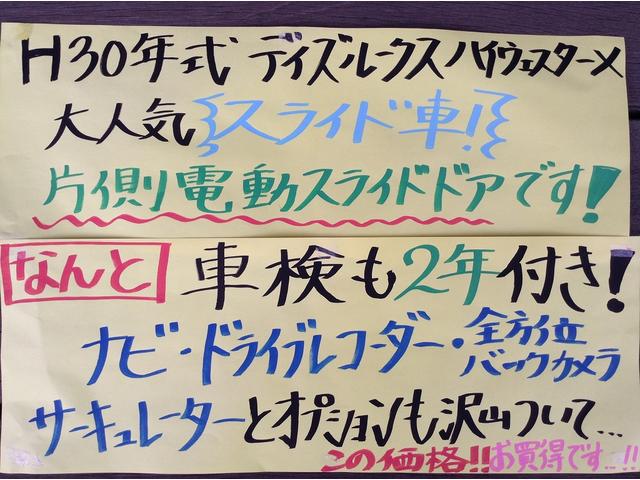 H30年式 デイズルークスハイウェスターメ
大人気スライド車!
片側電動スライドドアです!
なんと 車検も2年付き!
ナビ・ドライブレコーダー・全方位バックカメラ
サーキュレーターとオプションも沢山ついて...
この価格!!お買得です...!!